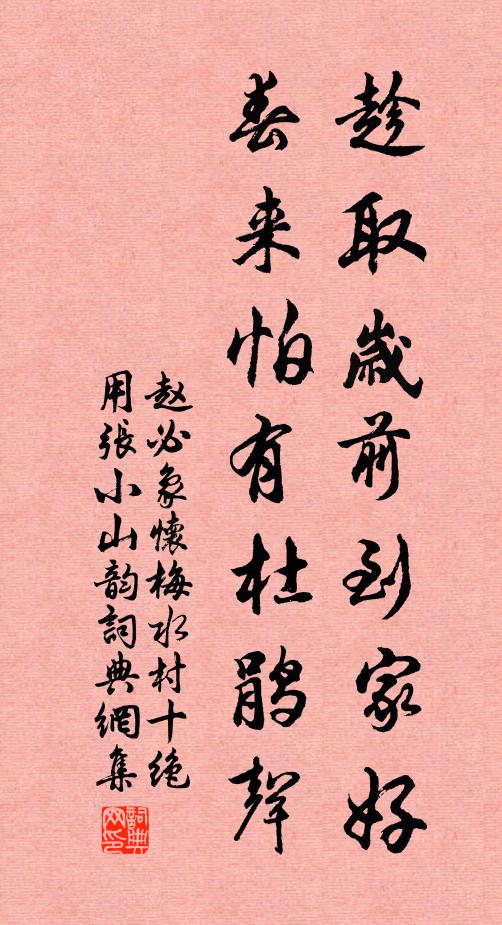 趁取歲前到家好
春来怕有杜鹃聲
赵必象懷梅水村十绝
用張小山韵詞典網集
詞典
网印